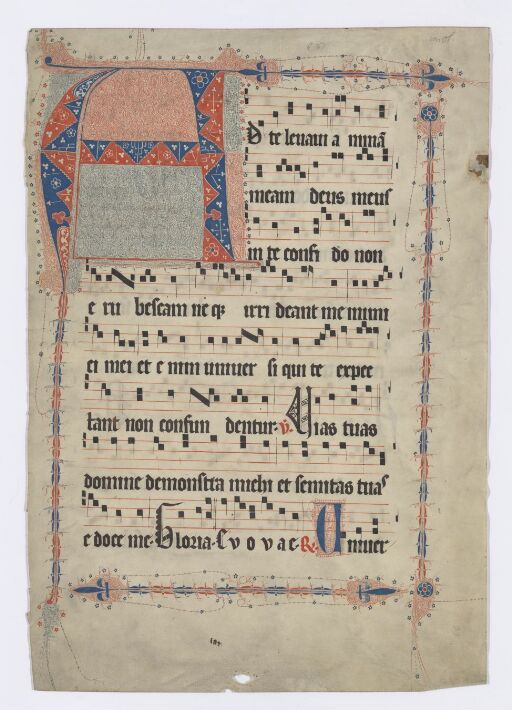 AD te levavi a nimā
meam deus meus
in te confi do non
e ru bescam ne qꝫ irri deant me inimi
ci mei et e nim univer si qui te expec
tant non confun dentur. ℣. Vias tuas
domine demonstra michi et semitas tuas
e doce me. Gloria. E v o v a e. ℟. Univer